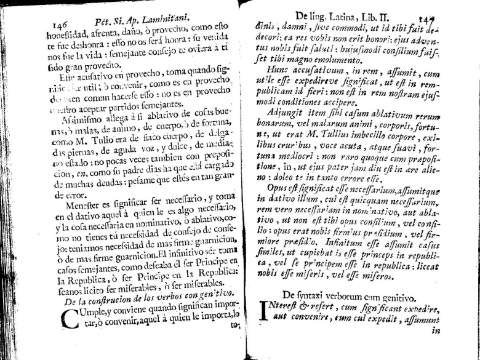 146 Pet. Si. Ap. Laminitani.
honestidad, afrenta, daño, ò provecho, como esto
te fue deshonra: esso no os serà honra: su venida
nos fue la vida: semejante consejo te
sido gran provecho.
Este acusativo en provecho, toma quando
util; ò convenir, como es en provecho
comun hacerse esso: no es en provecho
nuestro aceptar partidos semejantes.
Assimismo allega à si ablativo de cosas buenas,
ò malas, de animo, de cuerpo, ò de fortuna,
como M. Tullio era de flaco cuerpo, de delgadas
piernas, de aguda voz, y dulce, de mediano
estado: no pocas veces tambien con preposicion,
en, como su padre dias ha que està cargado
de muchas deudas: pesame que estès en tan grande
error.
Menester es significar ser necesario, y toma
en el dativo aquel à quien le es algo necesario,
y la cosa necesaria en nominativo, ò ablativo, como
no tienes tù necesidad de consejo de consejo:
teniamos necesidad de mas firme guarnicion,
ò de mas firme guarnicion. El infinitivo
casos semejantes, como deseaba el ser Principe en
la Republica, ò ser Principe en la Republica:
seanos licito ser miserables, ò ser miserables.
De la construcion de los verbos con genitivo.
CUmple, y conviene quando significan importar,
ò convenir, aquel à quien le importa, lo
De ling. Latina, Lib. II. 147
dinis, damni, sive commodi, ut id tibi fuit dedecori:
ea res vobis non erit honori: ejus adventus
nobis fuit saluti: hujusmodi consilium fuisset
tibi magno emolumento.
Hunc accusativum, in rem, assumit, cum
utile esse expedireve significat, ut est in rempublicam
id fieri: non est in rem nostram ejusmodi
conditiones accipere.
Adjungit item sibi casum ablativum rerum
bonarum, vel malarum animi, corporis, fortunæ,
ut erat M. Tullius imbecillo corpore, exilibus
cruribus, voce acuta, atque suavi, fortuna
mediocri: non raro quoque cum præpositione,
in, ut ejus pater jam diu est in ære alieno:
doleo te in tanto errore esse.
Opus est significat esse necessarium, assumitque
in dativo illum, cui est quicquam necessarium,
rem vero necessariam in nominativo, aut ablativo,
ut non est tibi opus consilium, vel consilio:
opus erat nobis firmius præsidium, vel firmiore
præsidio. Infinitum esse assumit casus
similes, ut cupiebat is esse princeps in republica,
vel se principem esse in republica: liceat
nobis esse miseris, vel esse miseros.
De syntaxi verborum cum genitivo.
INterest & refert, cum significant expedire,
aut convenire, cum cui expedit, assumunt
in